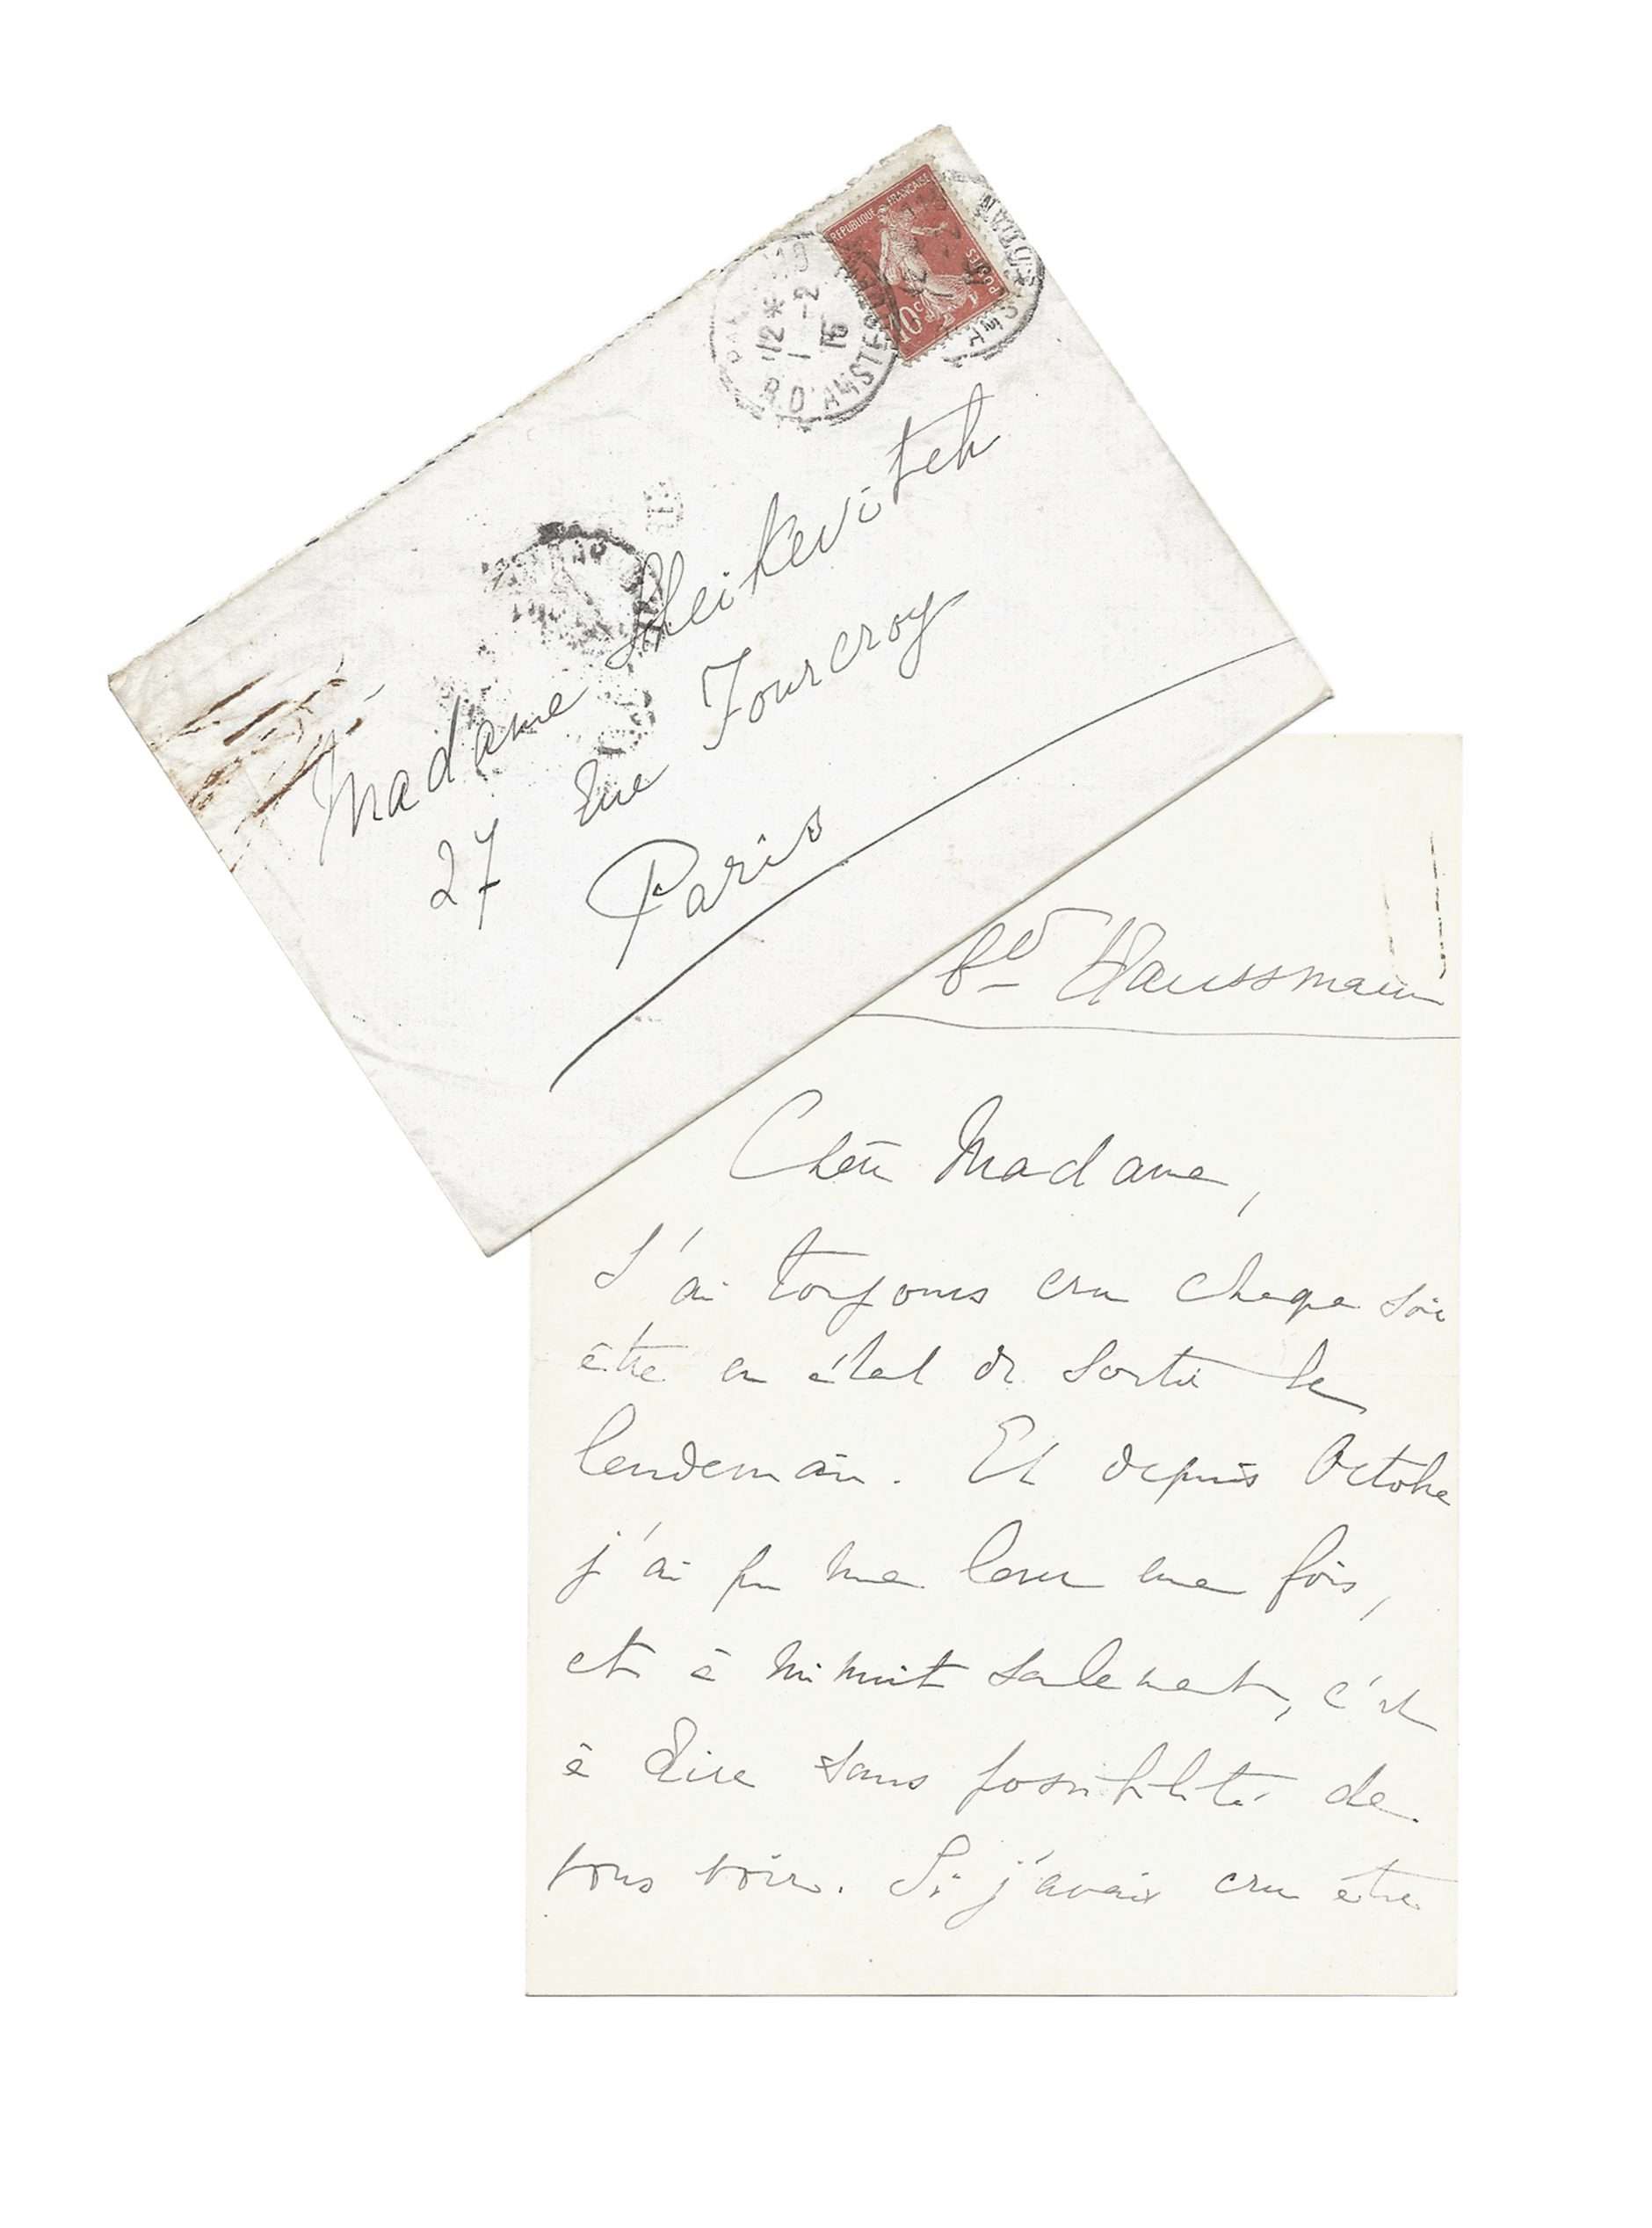 RÉPUBLIQUE FRANÇAISE
POSTES
10c
12*
1-2
15
R. D'AMSTERDAM
Madame Scheikevitch
27 Rue Fourcroy
Paris
bd Haussmann
Chère Madame,
J'ai toujours cru chaque soir
être en état de sortir le
lendemain. Et depuis Octobre
j'ai pu me lever une fois,
et à minuit seulement, c'est
à dire sans possibilité de
vous voir. Si j'avais cru être